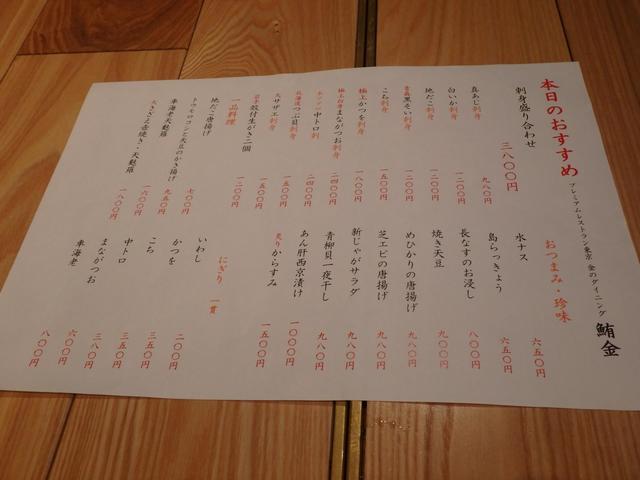 本日のおすすめ
プレミアムレストラン東京 金のダイニング 鮪金
刺身盛り合わせ 三八〇〇円
真あじ刺身 九八〇円
白いか刺身 一二〇〇円
地だこ刺身 一二〇〇円
黒そい刺身 一二〇〇円
こち刺身 一五〇〇円
極上かつを刺身 一八〇〇円
極上白身まながつお刺身 二四〇〇円
中トロ刺 二四〇〇円
北海道つぶ貝刺身 一五〇〇円
大サザエ刺身 一五〇〇円
岩本殻付生がき二個 一二〇〇円
一品料理
地だこ唐揚げ 七〇〇円
トウモロコシと大豆のかき揚げ 九五〇円
車海老天麩羅 一六〇〇円
大さざえ壺焼き・天麩羅 一八〇〇円
おつまみ・珍味
水ナス 六五〇円
島らっきょう 六五〇円
長なすのお浸し 八〇〇円
焼き天豆 九八〇円
めひかりの唐揚げ 九八〇円
芝エビの唐揚げ 九八〇円
新じゃがサラダ 九八〇円
青柳貝一夜干し 九八〇円
あん肝西京漬け 一〇〇〇円
炙りからすみ 一五〇〇円
にぎり 一貫
いわし 二〇〇円
かつを 三五〇円
こち 三五〇円
中トロ 五五〇円
まながつお 三八〇円
車海老 六〇〇円
八〇〇円